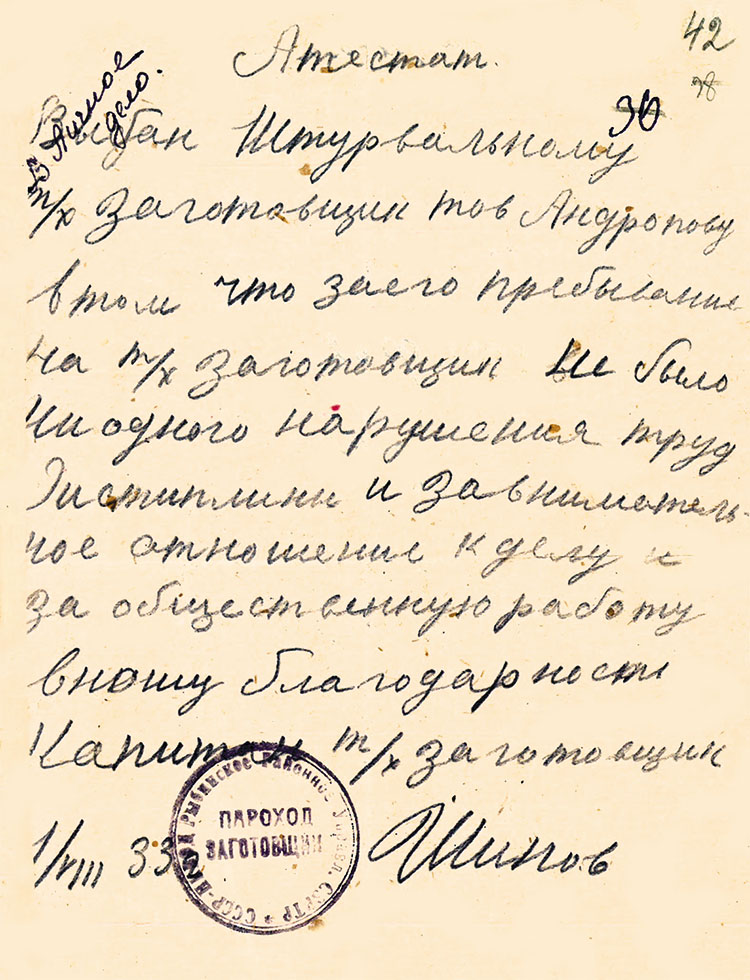 42
38
Атестат.
В Личное
дело.
30
Выдан Штурвальному
т/х Заготовщик тов Андропову
в том что заего пребывание
на т/х Заготовщик не было
ни одного нарушения труд
Дистиплини и за внимотель-
ное отношение к делу и
за общественную работу
вношу благодарность
Капитан т/х Заготовщик
1/VIII 33
ПАРОХОД
ЗАГОТОВЩИК
СССР РЫБИНСКОЕ РАЙОННОЕ